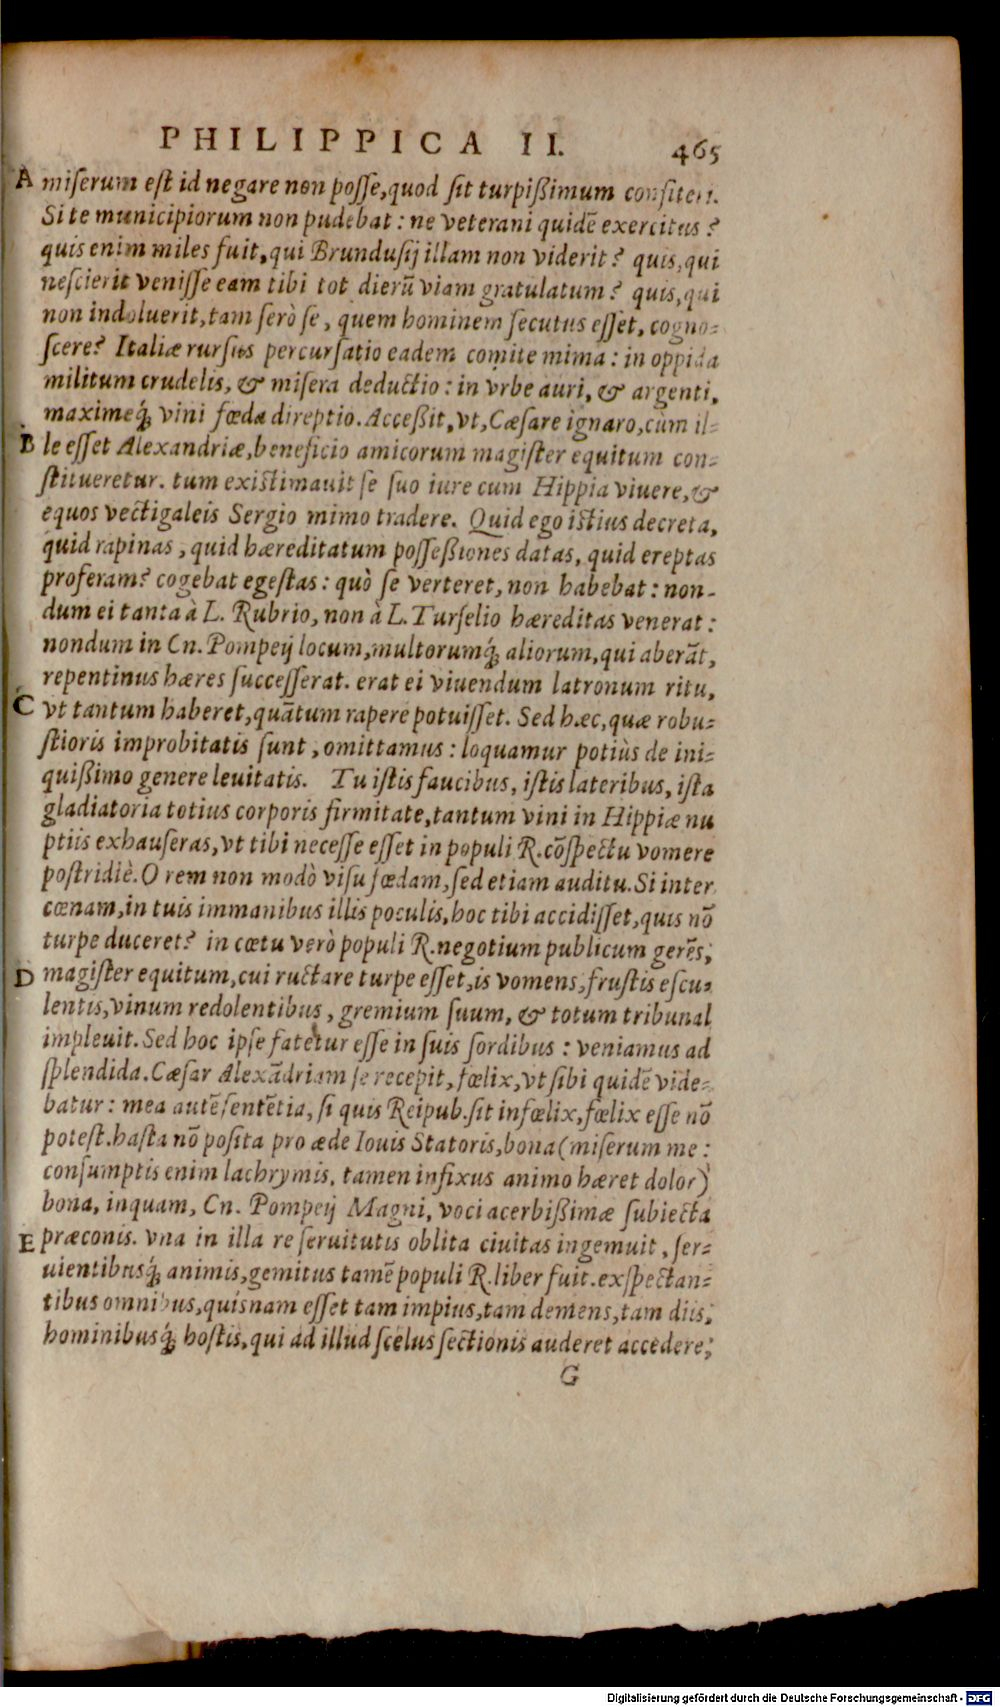 PHILIPPICA II. 465
A miserum est id negare non posse, quod sit turpißimum confiteri.
Si te municipiorum non pudebat: ne veterani quidē exercitus?
quis enim miles fuit, qui Brundusij illam non viderit? quis, qui
nescierit venisse eam tibi tot dierū viam gratulatum? quis, qui
non indoluerit, tam serò se, quem hominem secutus esset, cogno-
scere? Italiæ rursus percursatio eadem comite mima: in oppida
militum crudelis, & misera deductio: in vrbe auri, & argenti,
maximeq́; vini fœda direptio. Acceßit, vt, Cæsare ignaro, cum il-
B le esset Alexandriæ, beneficio amicorum magister equitum con-
stitueretur. tum existimauit se suo iure cum Hippia viuere, &
equos vectigaleis Sergio mimo tradere. Quid ego istius decreta,
quid rapinas, quid hæreditatum posseßiones datas, quid ereptas
proferam? cogebat egestas: quò se verteret, non habebat: non-
dum ei tanta à L. Rubrio, non à L. Turselio hæreditas venerat:
nondum in Cn. Pompeij locum, multorumq́; aliorum, qui aberāt,
repentinus hæres successerat. erat ei viuendum latronum ritu,
C vt tantum haberet, quātum rapere potuisset. Sed hæc, quæ robu-
stioris improbitatis sunt, omittamus: loquamur potiùs de ini-
quißimo genere leuitatis. Tu istis faucibus, istis lateribus, ista
gladiatoria totius corporis firmitate, tantum vini in Hippiæ nu
ptiis exhauseras, vt tibi necesse esset in populi R. cōspectu vomere
postridiè. O rem non modò visu fœdam, sed etiam auditu. Si inter
cœnam, in tuis immanibus illis poculis, hoc tibi accidisset, quis nō
turpe duceret? in cœtu verò populi R. negotium publicum gerēs,
D magister equitum, cui ructare turpe esset, is vomens, frustis escu-
lentis, vinum redolentibus, gremium suum, & totum tribunal
impleuit. Sed hoc ipse fatetur esse in suis sordibus: veniamus ad
splendida. Cæsar Alexādriam se recepit, fœlix, vt sibi quidē vide-
batur: mea autē sentētia, si quis Reipub. sit infœlix, fœlix esse nō
potest. hasta nō posita pro æde Iouis Statoris, bona (miserum me:
consumptis enim lachrymis, tamen infixus animo hæret dolor)
bona, inquam, Cn. Pompeij Magni, voci acerbißimæ subiecta
E præconis. vna in illa re seruitutis oblita ciuitas ingemuit, ser-
uientibusq́; animis, gemitus tamē populi R. liber fuit. exspectan-
tibus omnibus, quisnam esset tam impius, tam demens, tam diis,
hominibusq́; hostis, qui ad illud scelus sectionis auderet accedere,
G
Digitalisierung gefördert durch die Deutsche Forschungsgemeinschaft - DFG